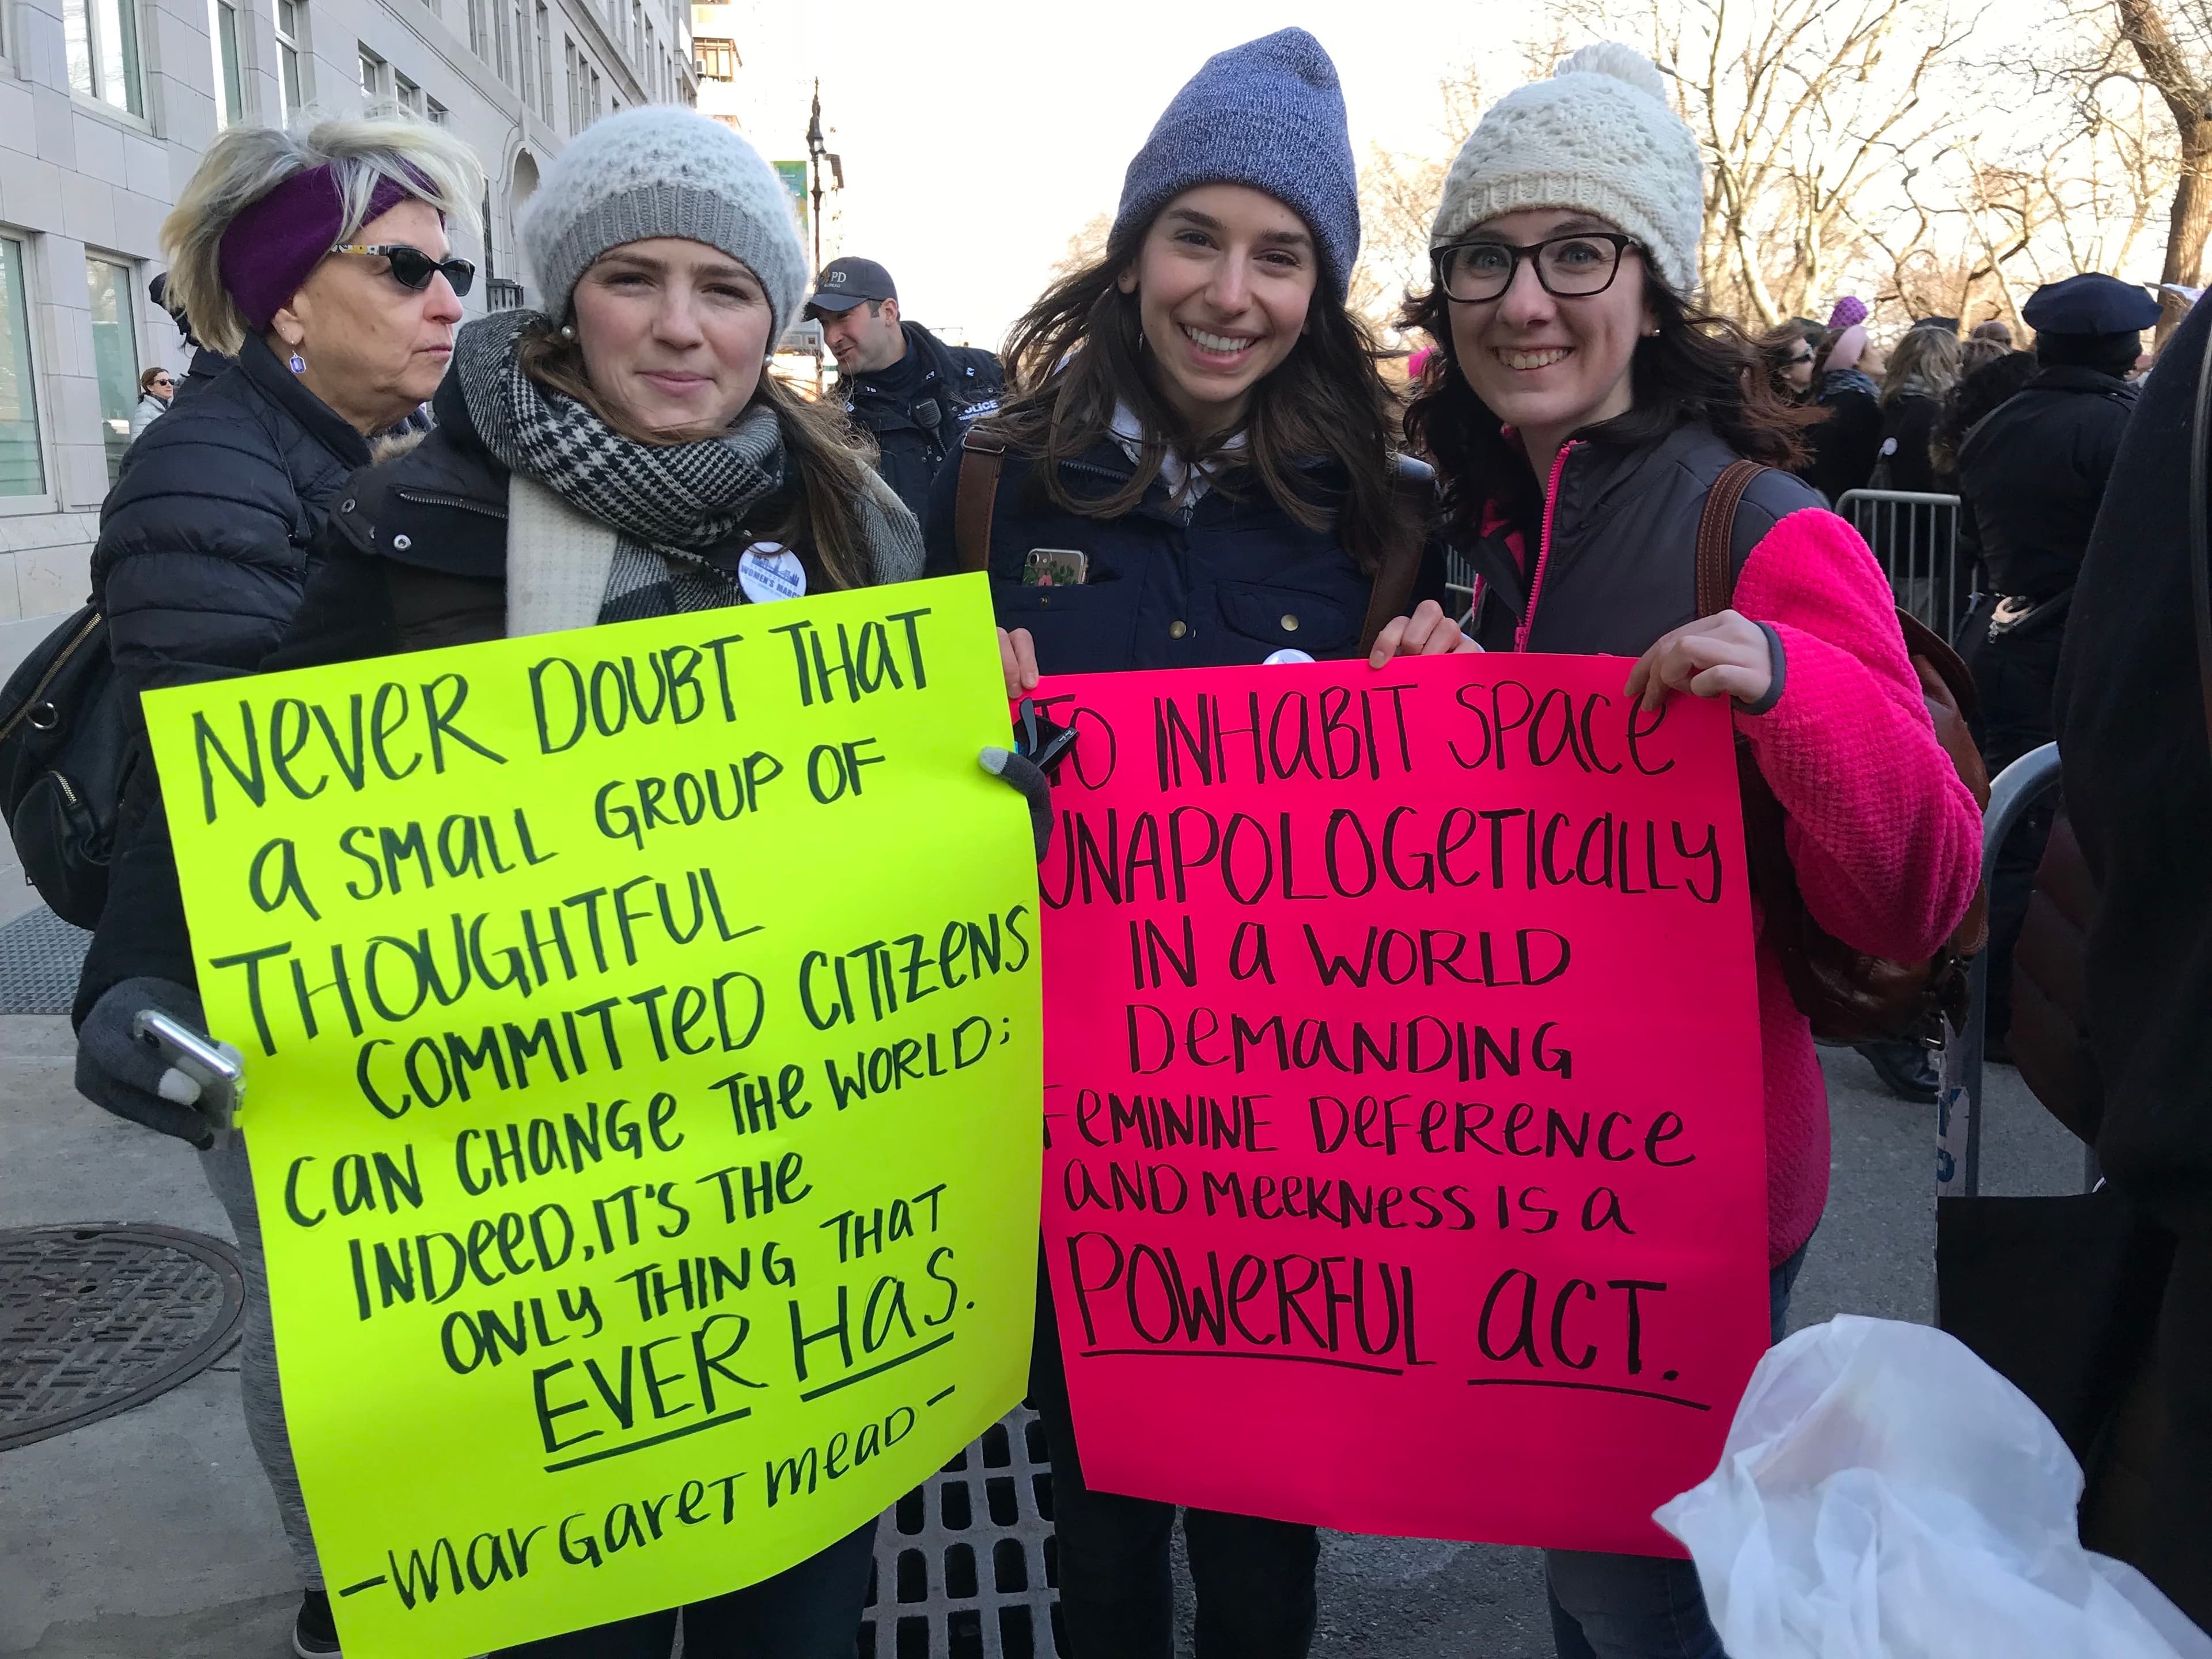 NEVER DOUBT THAT
A SMALL GROUP OF
THOUGHTFUL
COMMITTED CITIZENS
CAN CHANGE THE WORLD;
INDEED, IT'S THE
ONLY THING THAT
EVER HAS.
-MARGARET MEAD-
TO INHABIT SPACE
UNAPOLOGETICALLY
IN A WORLD
DEMANDING
FEMININE DEFERENCE
AND MEEKNESS IS A
POWERFUL ACT.
WOMEN'S MARCH
PD
POLICE